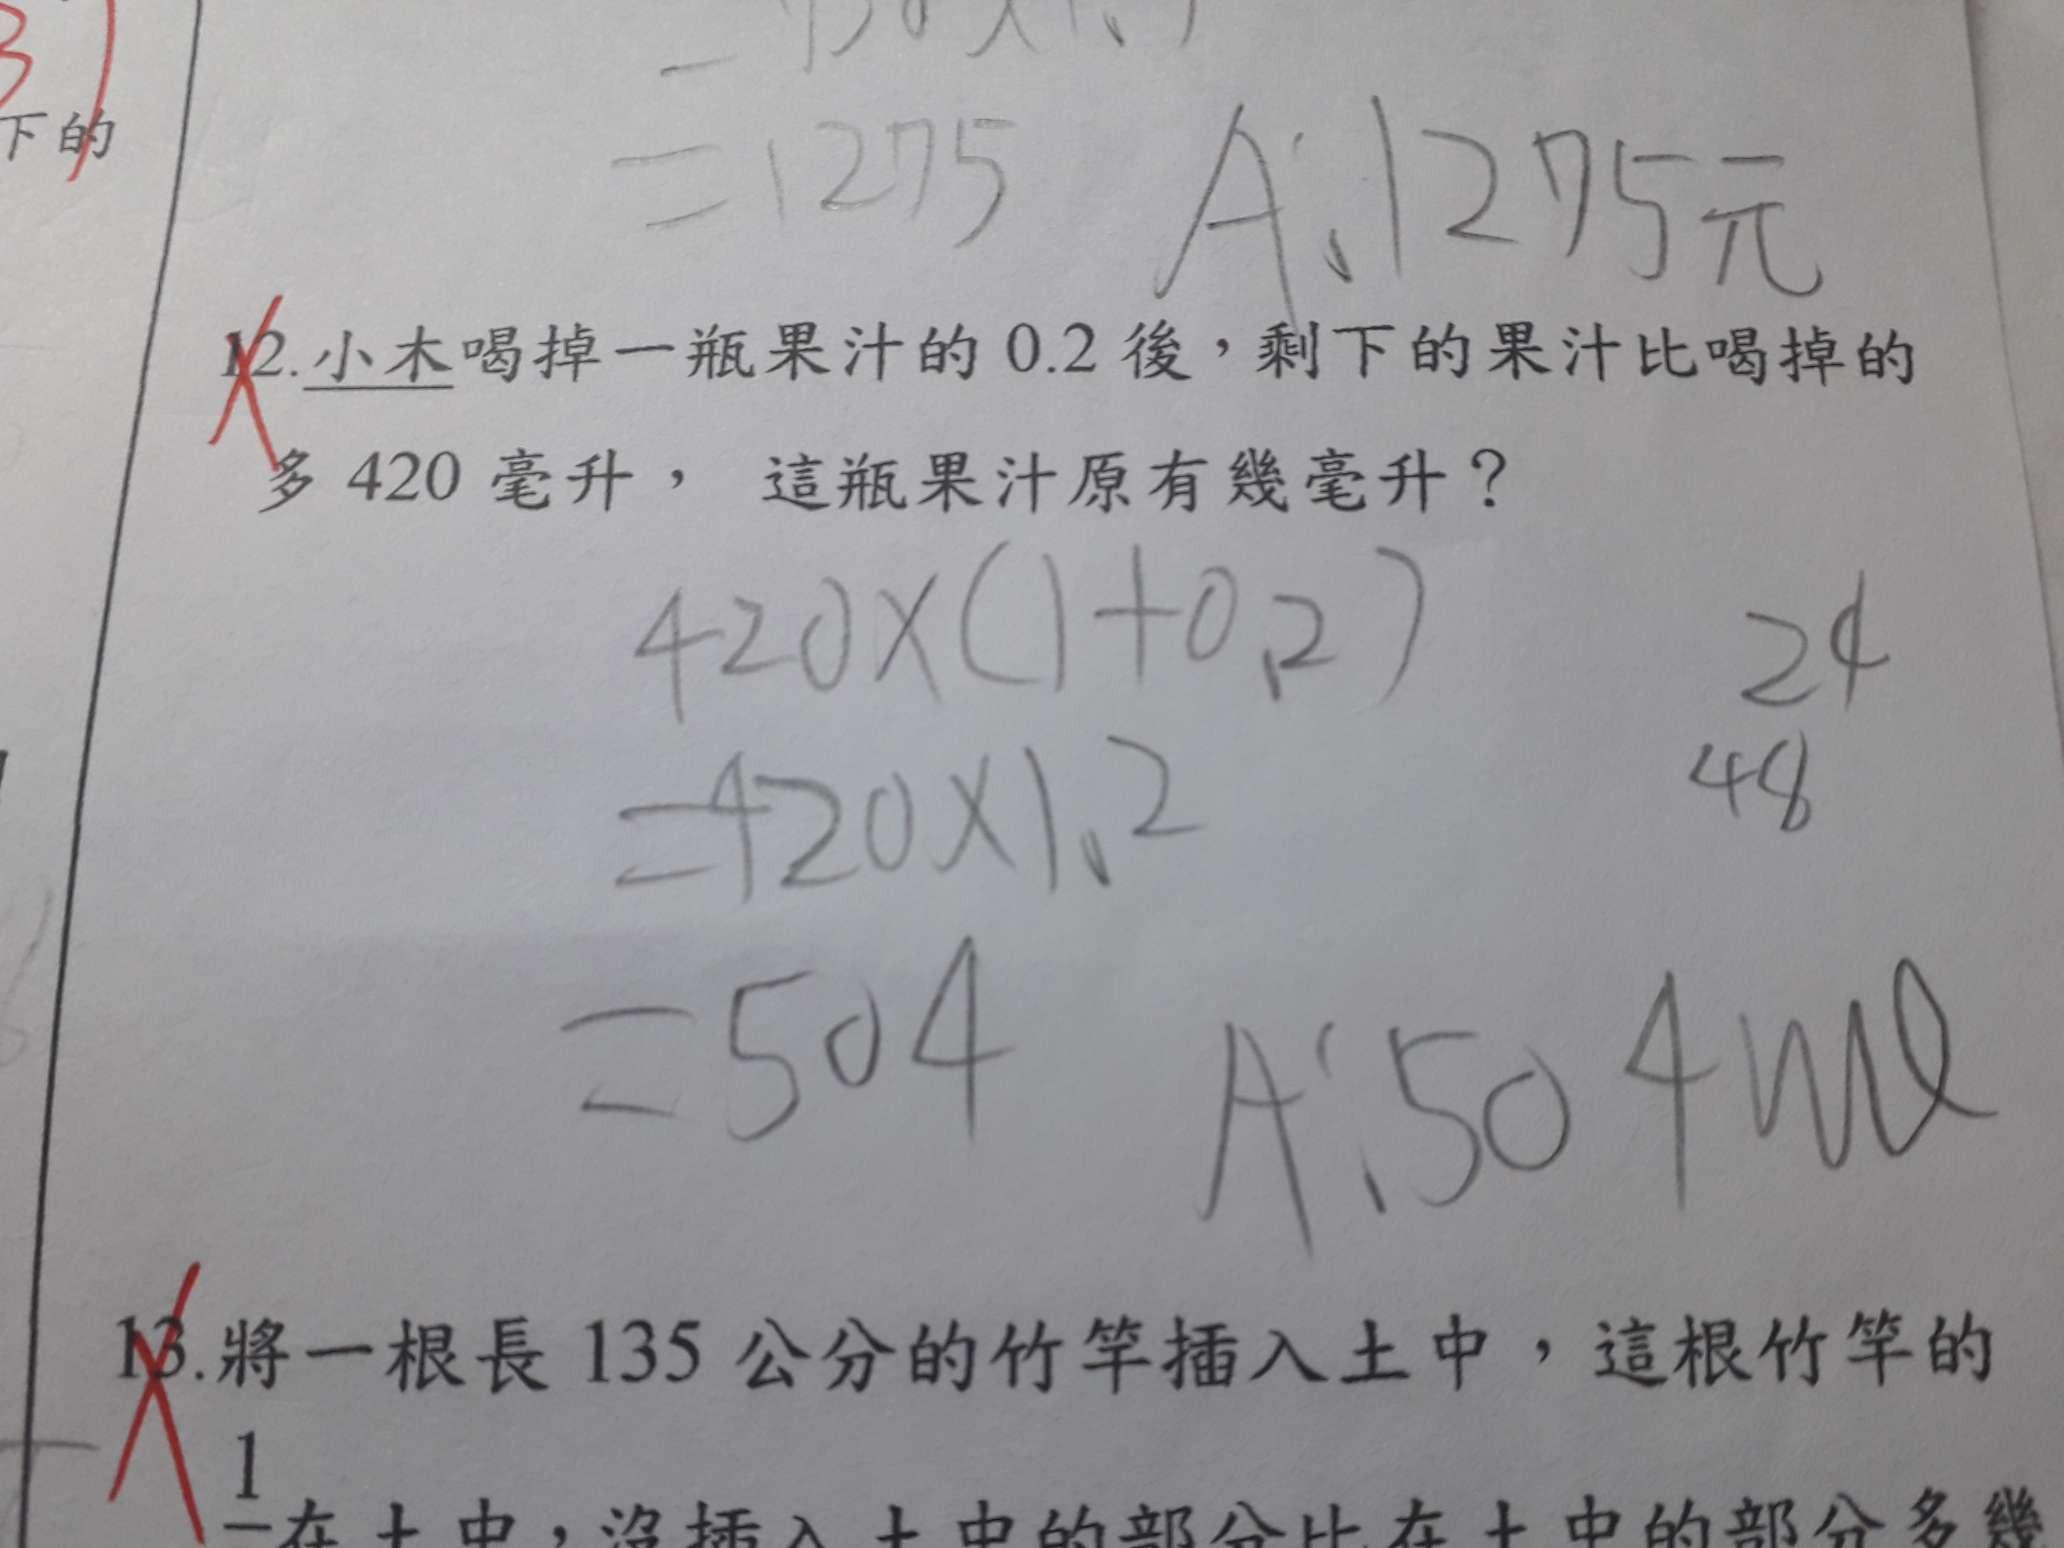 下的
=1275 A:1275元
12.小木喝掉一瓶果汁的 0.2 後，剩下的果汁比喝掉的
多 420 毫升， 這瓶果汁原有幾毫升？
420×(1+0.2)
24
=420×1.2
48
=504
A:504ml
13.將一根長 135 公分的竹竿插入土中，這根竹竿的
1
在土中，沒插入土中的部分比在土中的部分多幾